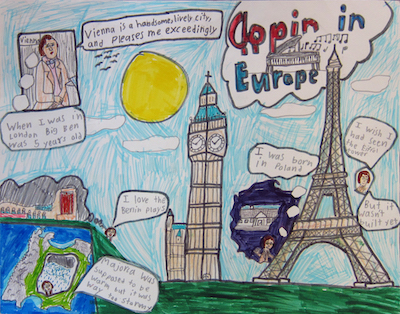 Vienna
Vienna is a handsome, lively city,
and pleases me exceedingly
Chopin in
Europe
When I was in
London Big Ben
was 5 years old
I wish I
had seen
the Eiffel
Tower
I was born
in Poland
I love the
Berlin plays
But it
wasn't
built yet
Majorca was
supposed to be
warm but it was
way too stormy